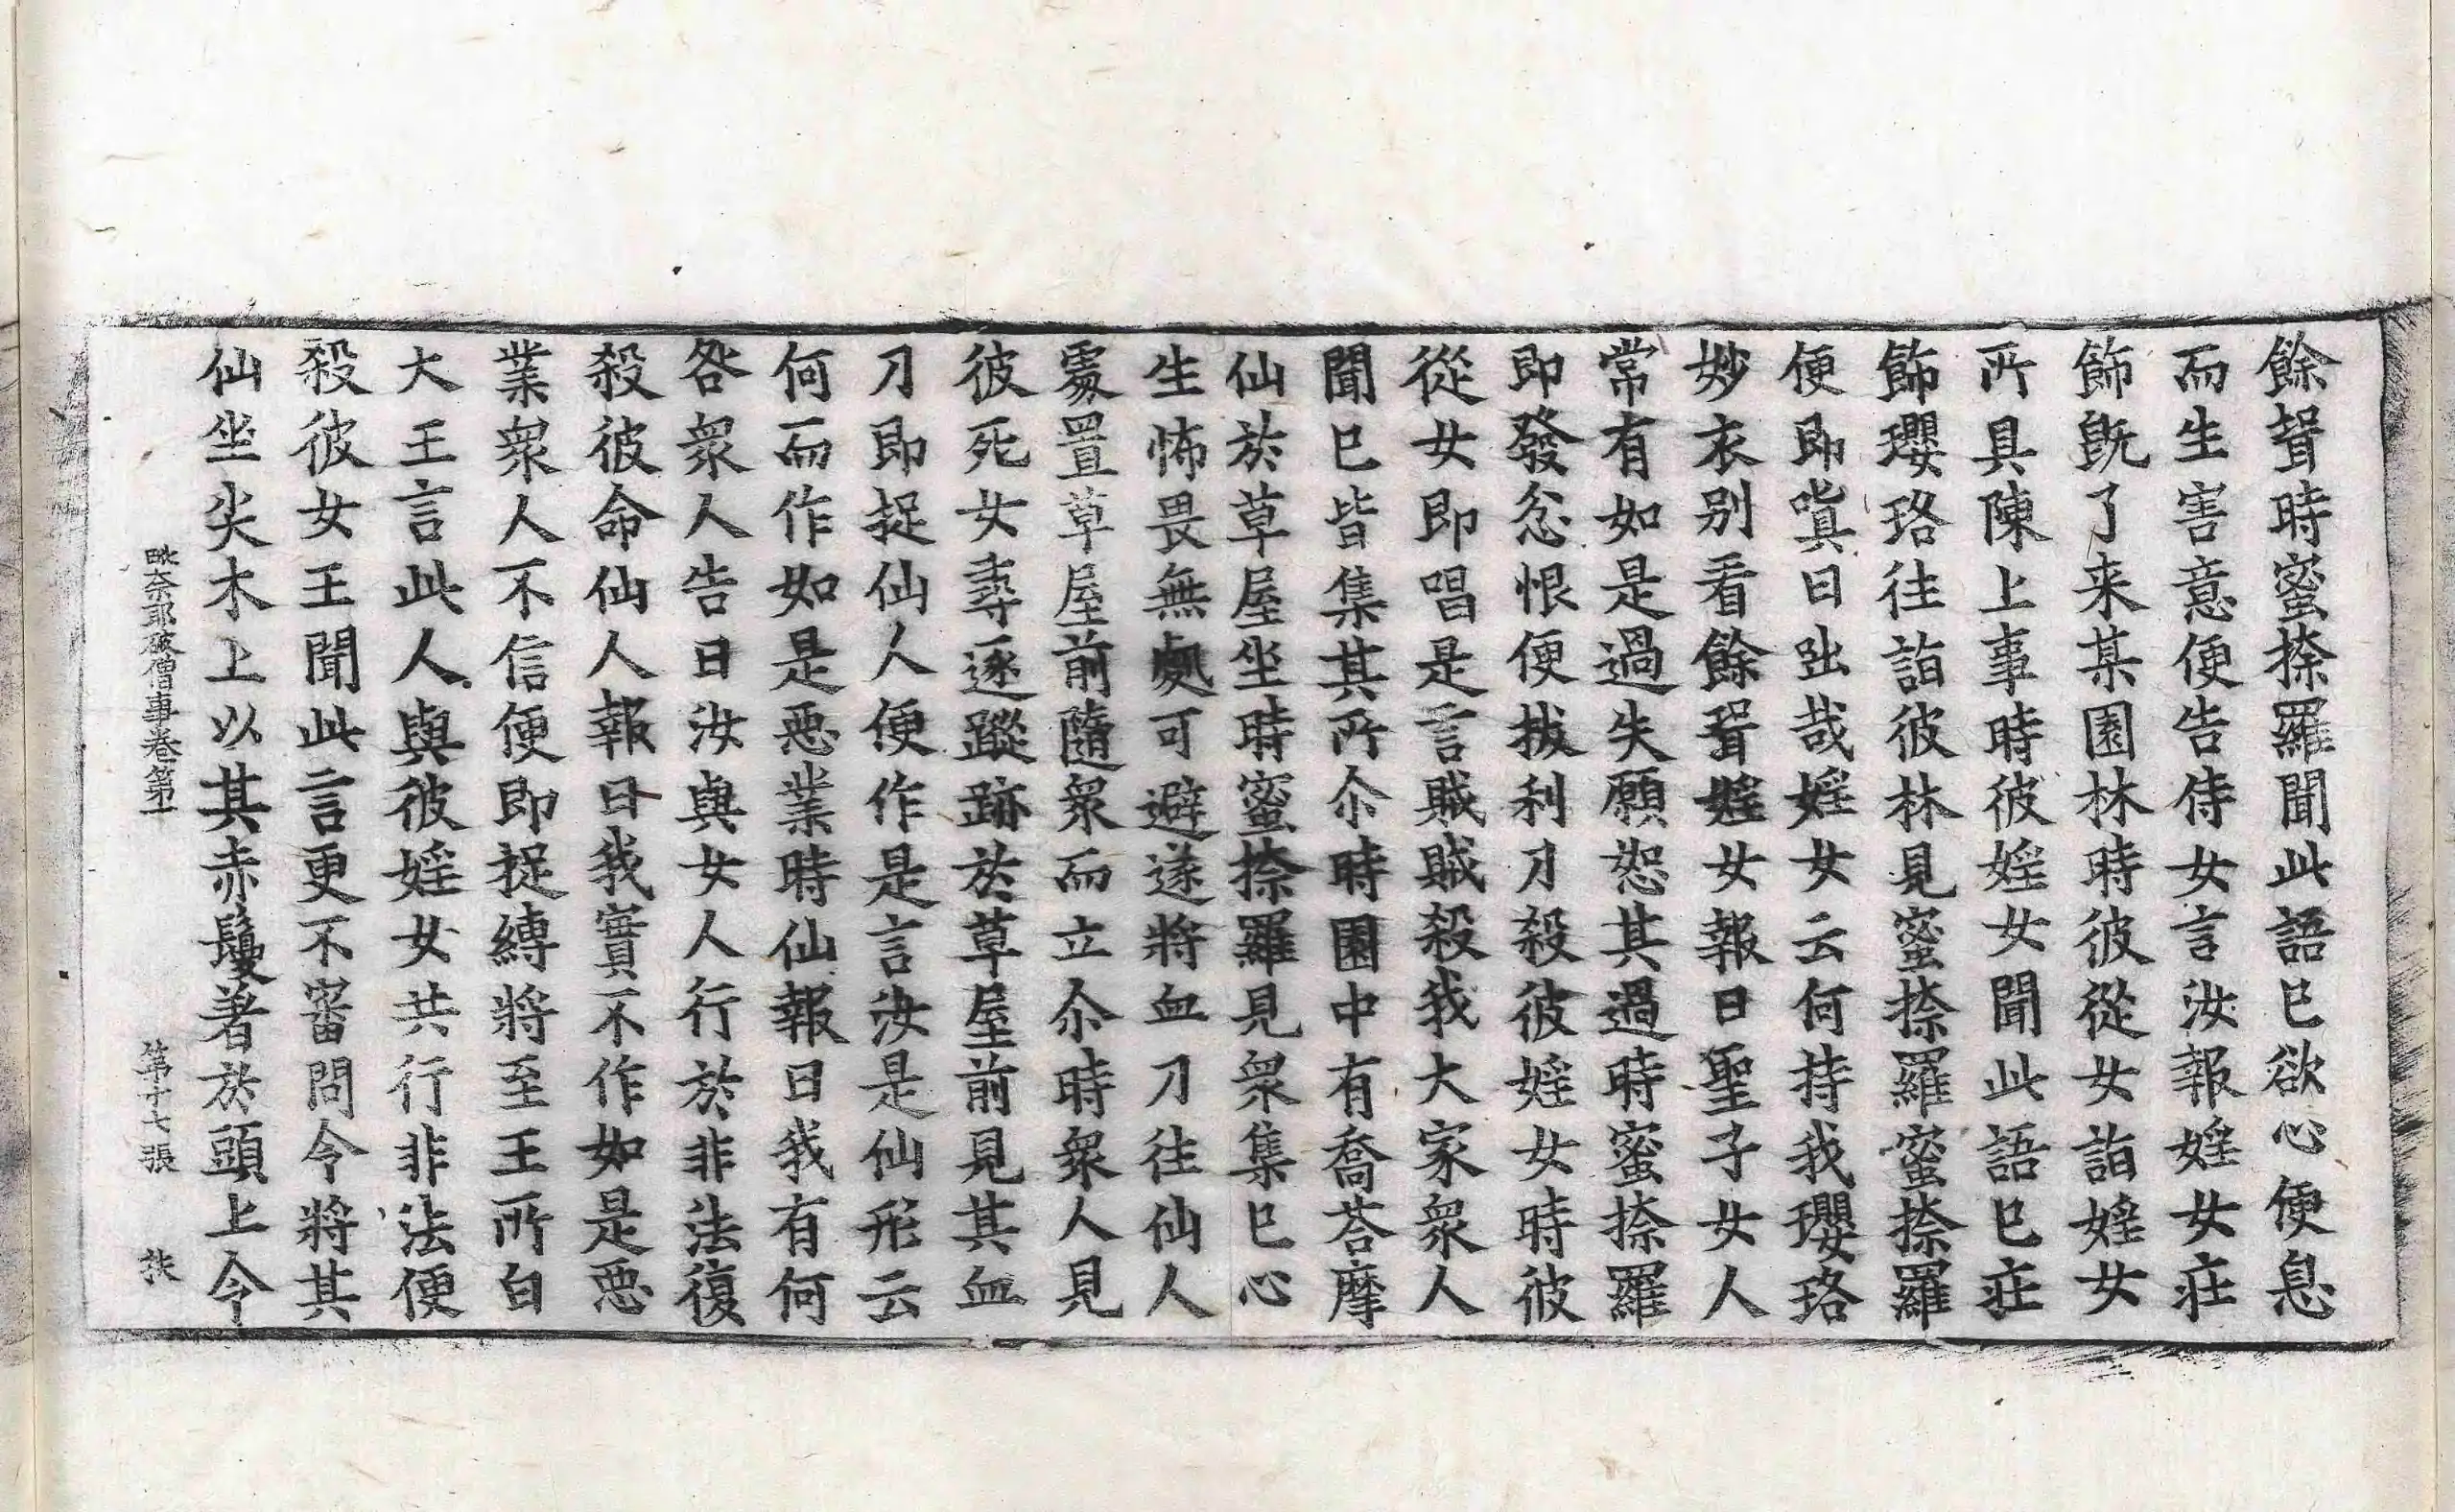 餘聟時蜜捺羅聞此語已欲心便息
而生害意便告侍女言汝報婬女莊
飾旣了来某園林時彼從女詣婬女
所具陳上事時彼婬女聞此語已莊
飾瓔珞往詣彼林見蜜捺羅蜜捺羅
便即嗔曰咄哉婬女云何持我瓔珞
妙衣別看餘聟婬女報曰聖子女人
常有如是過失願恕其過時蜜捺羅
即發忿恨便拔利刀殺彼婬女時彼
從女即唱是言賊賊殺我大家衆人
聞已皆集其所尒時園中有喬荅摩
仙於草屋坐時蜜捺羅見衆集已心
生怖畏無處可避遂將血刀往仙人
處置草屋前隨衆而立尒時衆人見
彼死女尋逐蹤跡於草屋前見其血
刀即捉仙人便作是言汝是仙形云
何而作如是惡業時仙報曰我有何
咎衆人告曰汝與女人行於非法復
殺彼命仙人報曰我實不作如是惡
業衆人不信便即捉縛將至王所白
大王言此人與彼婬女共行非法便
殺彼女王聞此言更不審問令將其
仙坐尖木上以其赤鬘著於頭上令
毗奈耶破僧事卷第一 第十七張 扶